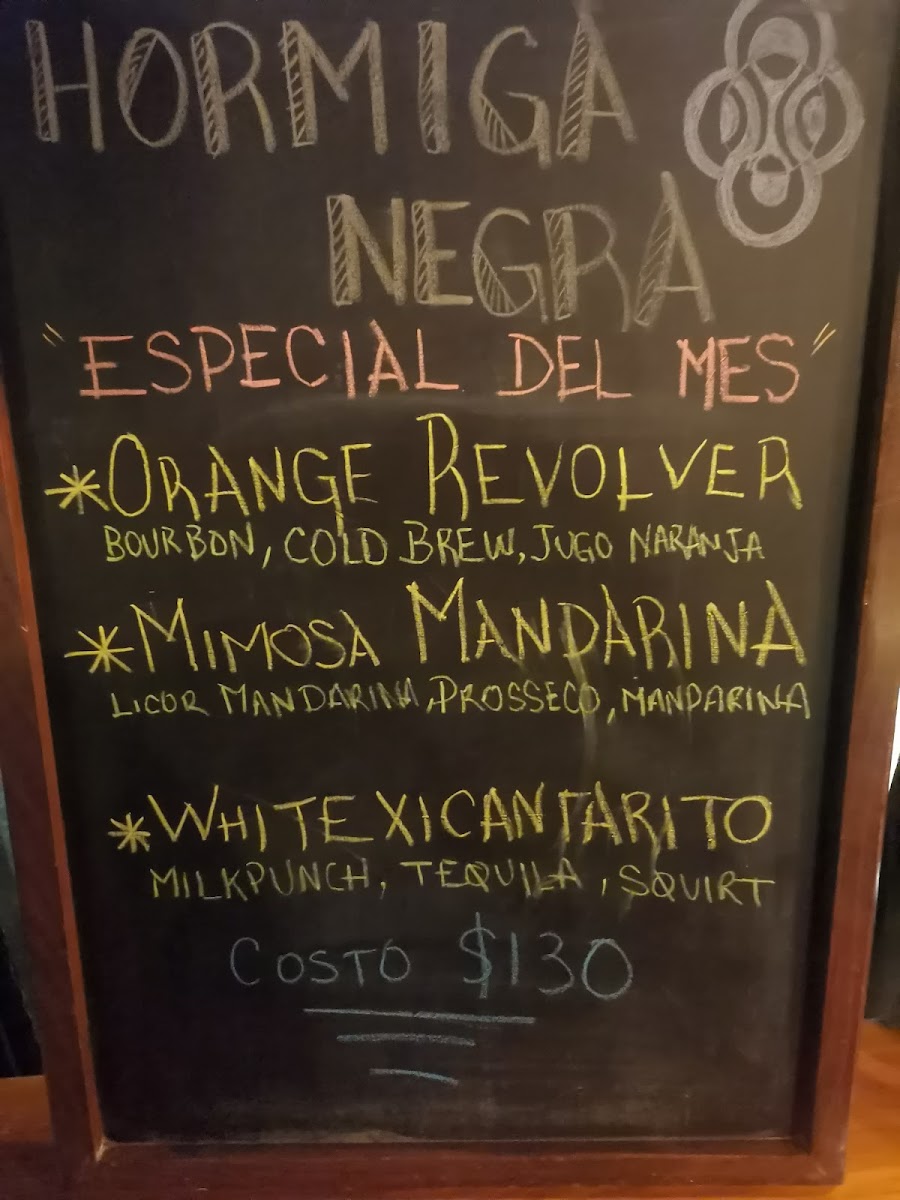 HORMIGA
NEGRA
"ESPECIAL DEL MES"
*ORANGE REVOLVER
BOURBON, COLD BREW, JUGO NARANJA
*MIMOSA MANDARINA
LICOR MANDARINA, PROSSECO, MANDARINA
*WHITEXICANTARITO
MILKPUNCH, TEQUILA, SQUIRT
COSTO $130